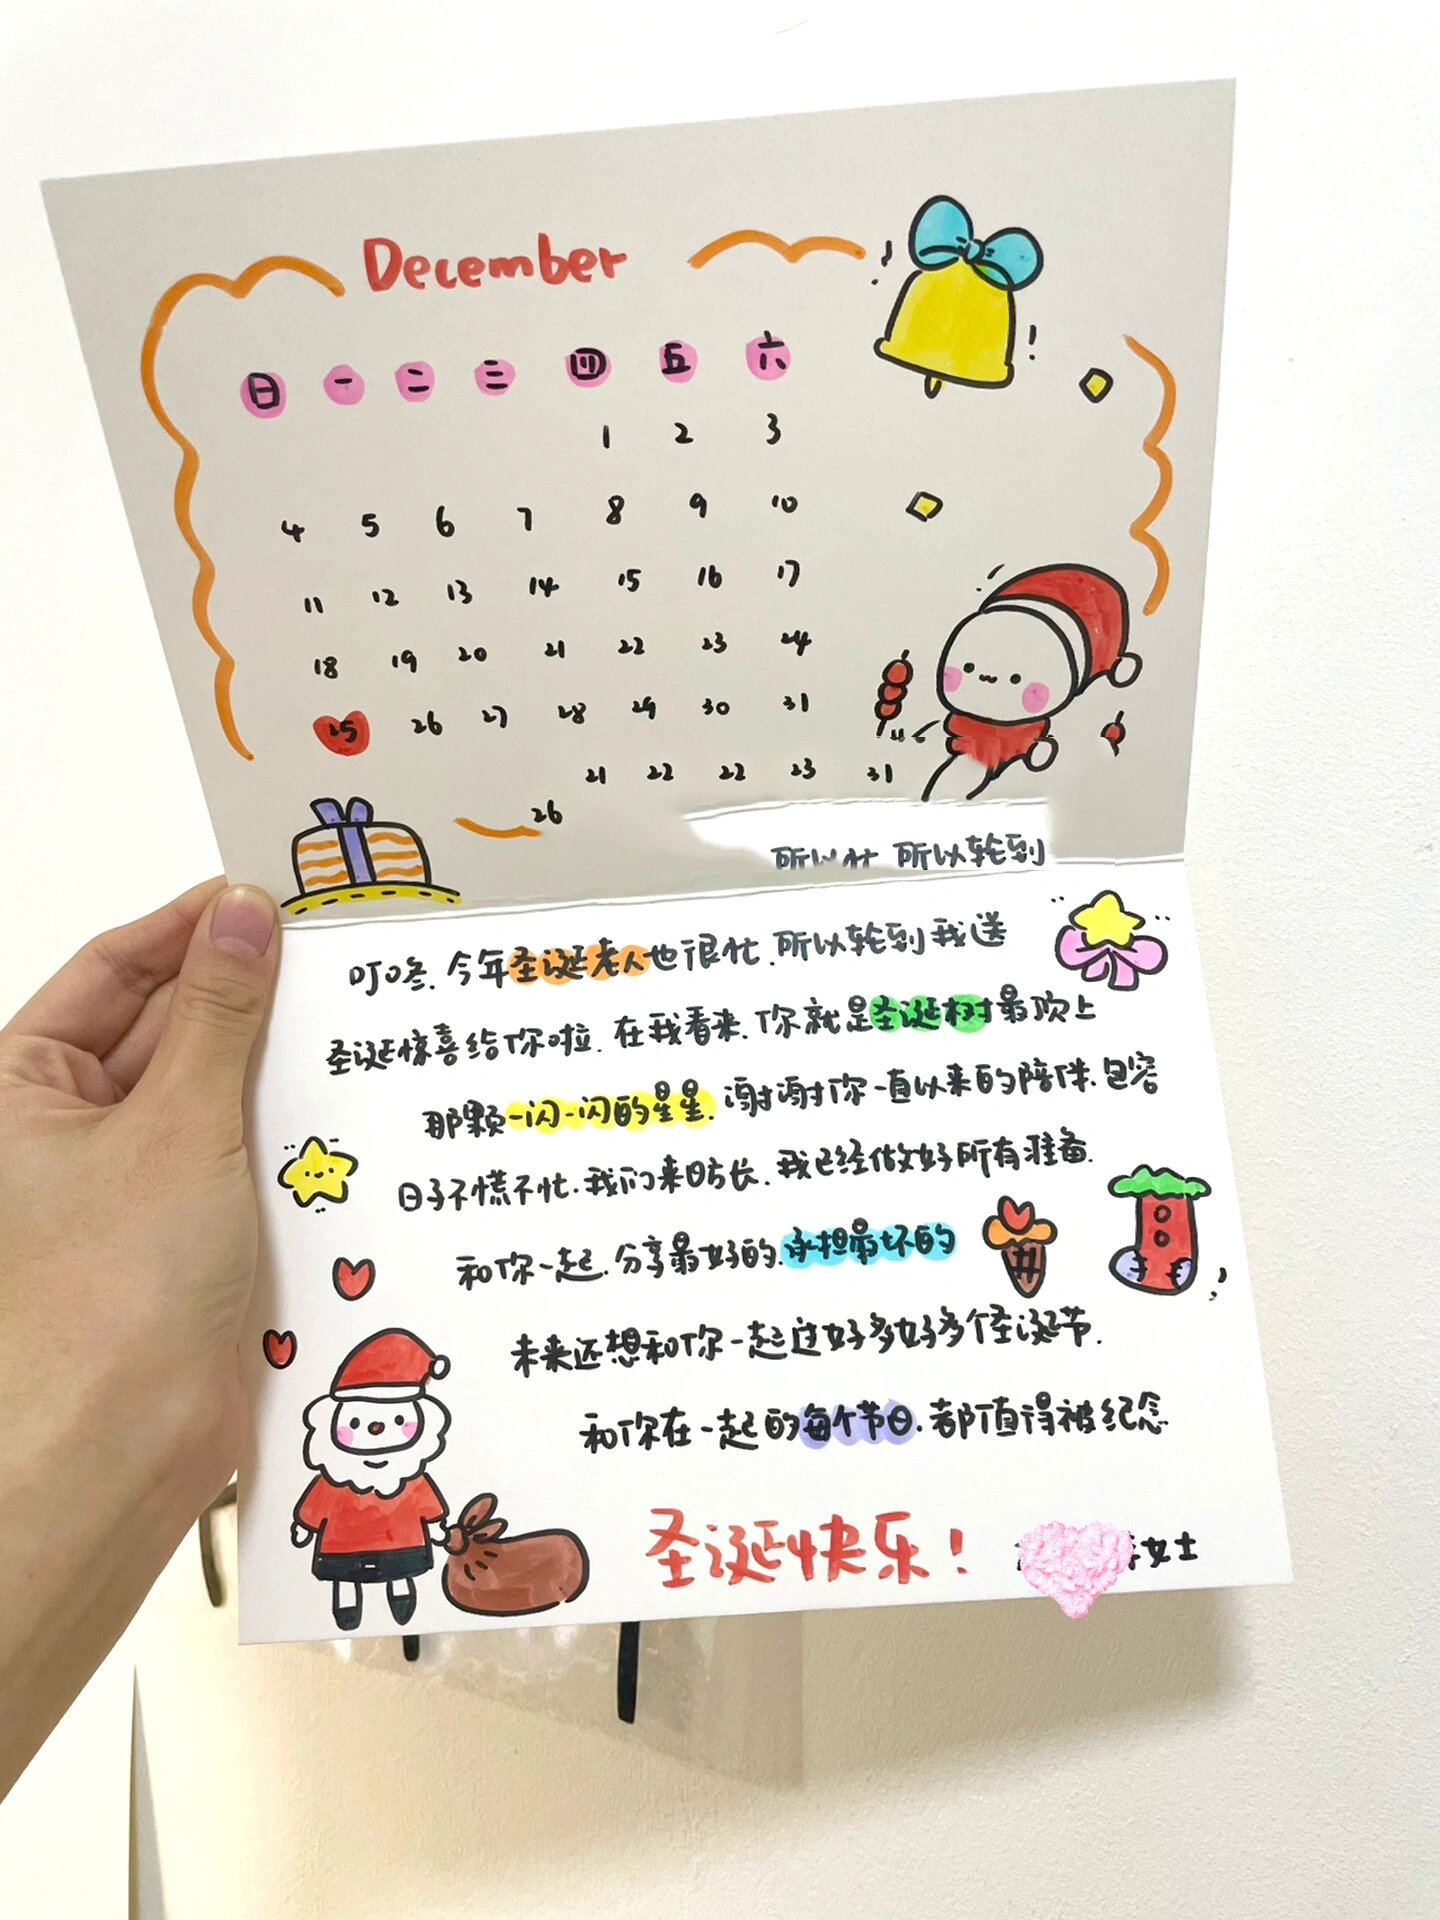 December
日 一 二 三 四 五 六
1 2 3
4 5 6 7 8 9 10
11 12 13 14 15 16 17
18 19 20 21 22 23 24
25 26 27 28 29 30 31
21 22 22 23 31
26
所以忙 所以轮到
叮咚.今年圣诞老人也很忙.所以轮到我送
圣诞惊喜给你啦.在我看来.你就是圣诞树最顶上
那颗一闪一闪的星星.谢谢你一直以来的陪伴.包容
日子不慌不忙.我们来日方长.我已经做好所有准备.
和你一起.分享最好的.承担最坏的
未来还想和你一起过好多好多个圣诞节.
和你在一起的每个节日.都值得被纪念
圣诞快乐!
女士